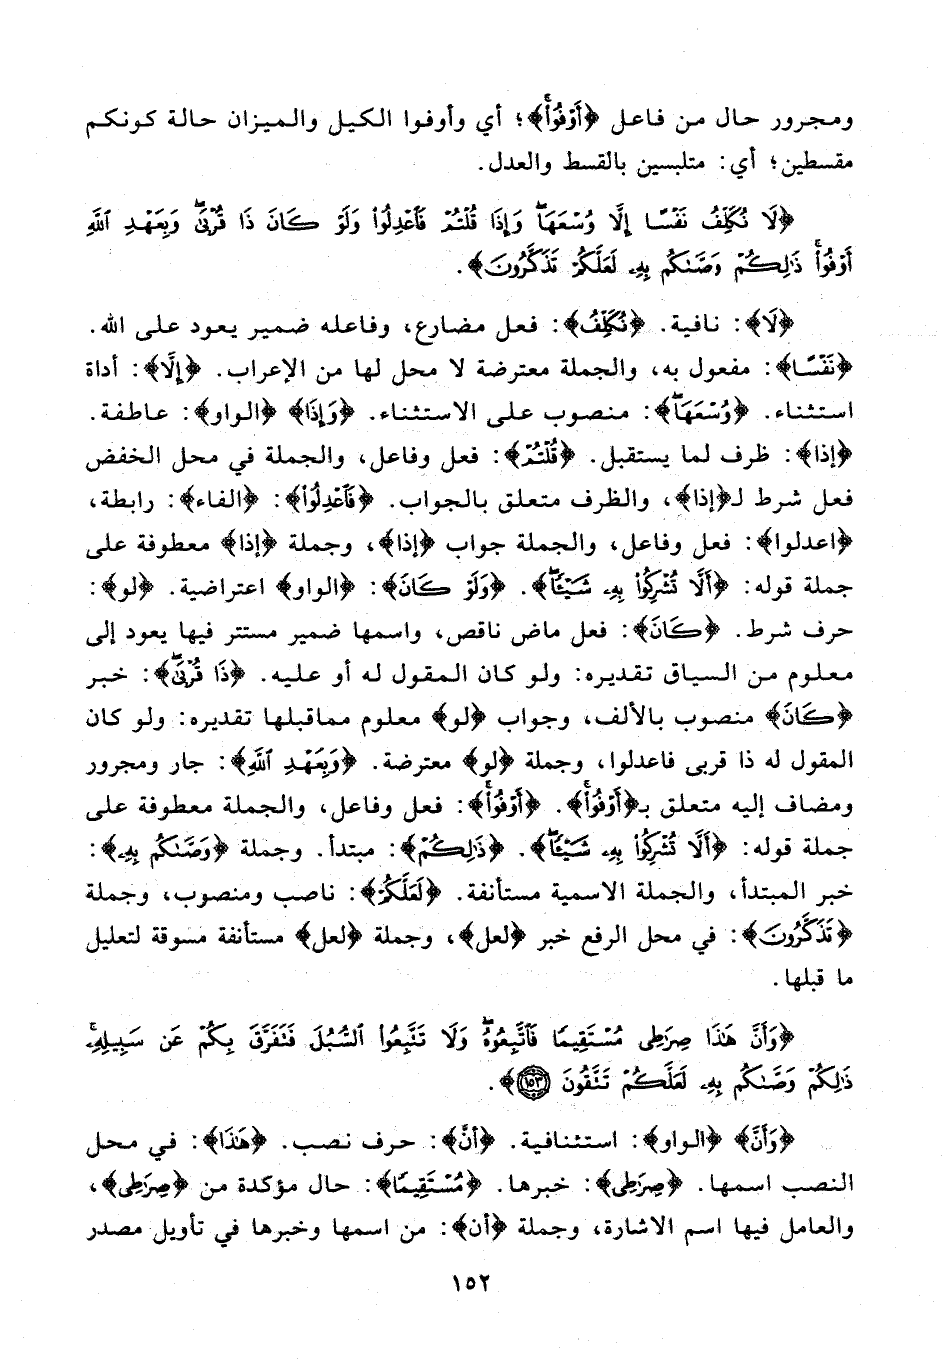 ومجرور حال من فاعل ﴿أَوْفُوا۟ۚ﴾؛ أي وأوفوا الكيل والميزان حالة كونكم
مقسطين؛ أي: متلبسين بالقسط والعدل.
﴿لَا نُكَلِّفُ نَفْسًا إِلَّا وُسْعَهَاۖ وَإِذَا قُلْتُمْ فَٱعْدِلُوا۟ وَلَوْ كَانَ ذَا قُرْبَىٰۖ وَبِعَهْدِ ٱللَّهِ
أَوْفُوا۟ۚ ذَٰلِكُمْ وَصَّىٰكُم بِهِۦ لَعَلَّكُمْ تَذَكَّرُونَ﴾.
﴿لَا﴾: نافية. ﴿نُكَلِّفُ﴾: فعل مضارع، وفاعله ضمير يعود على الله.
﴿نَفْسًا﴾: مفعول به، والجملة معترضة لا محل لها من الإعراب. ﴿إِلَّا﴾: أداة
استثناء. ﴿وُسْعَهَاۖ﴾: منصوب على الاستثناء. ﴿وَإِذَا﴾ ﴿الواو﴾: عاطفة.
﴿إذا﴾: ظرف لما يستقبل. ﴿قُلْتُمْ﴾: فعل وفاعل، والجملة في محل الخفض
فعل شرط لـ﴿إذا﴾، والظرف متعلق بالجواب. ﴿فَٱعْدِلُوا۟﴾: ﴿الفاء﴾: رابطة،
﴿اعدلوا﴾: فعل وفاعل، والجملة جواب ﴿إذا﴾، وجملة ﴿إذا﴾ معطوفة على
جملة قوله: ﴿أَلَّا تُشْرِكُوا۟ بِهِۦ شَيْـًٔاۖ﴾. ﴿وَلَوْ كَانَ﴾: ﴿الواو﴾ اعتراضية. ﴿لو﴾:
حرف شرط. ﴿كَانَ﴾: فعل ماض ناقص، واسمها ضمير مستتر فيها يعود إلى
معلوم من السياق تقديره: ولو كان المقول له أو عليه. ﴿ذَا قُرْبَىٰۖ﴾: خبر
﴿كَانَ﴾ منصوب بالألف، وجواب ﴿لو﴾ معلوم مماقبلها تقديره: ولو كان
المقول له ذا قربى فاعدلوا، وجملة ﴿لو﴾ معترضة. ﴿وَبِعَهْدِ ٱللَّهِ﴾: جار ومجرور
ومضاف إليه متعلق بـ﴿أَوْفُوا۟ۚ﴾. ﴿أَوْفُوا۟ۚ﴾: فعل وفاعل، والجملة معطوفة على
جملة قوله: ﴿أَلَّا تُشْرِكُوا۟ بِهِۦ شَيْـًٔاۖ﴾. ﴿ذَٰلِكُمْ﴾: مبتدأ. وجملة ﴿وَصَّىٰكُم بِهِۦ﴾:
خبر المبتدأ، والجملة الاسمية مستأنفة. ﴿لَعَلَّكُمْ﴾: ناصب ومنصوب، وجملة
﴿تَذَكَّرُونَ﴾: في محل الرفع خبر ﴿لعل﴾، وجملة ﴿لعل﴾ مستأنفة مسوقة لتعليل
ما قبلها.
﴿وَأَنَّ هَٰذَا صِرَٰطِى مُسْتَقِيمًا فَٱتَّبِعُوهُۖ وَلَا تَتَّبِعُوا۟ ٱلسُّبُلَ فَتَفَرَّقَ بِكُمْ عَن سَبِيلِهِۦۚ
ذَٰلِكُمْ وَصَّىٰكُم بِهِۦ لَعَلَّكُمْ تَتَّقُونَ ١٥٣﴾.
﴿وَأَنَّ﴾ ﴿الواو﴾: استئنافية. ﴿أنَّ﴾: حرف نصب. ﴿هَٰذَا﴾: في محل
النصب اسمها. ﴿صِرَٰطِى﴾: خبرها. ﴿مُسْتَقِيمًا﴾: حال مؤكدة من ﴿صِرَٰطِى﴾،
والعامل فيها اسم الاشارة، وجملة ﴿أن﴾: من اسمها وخبرها في تأويل مصدر
١٥٢